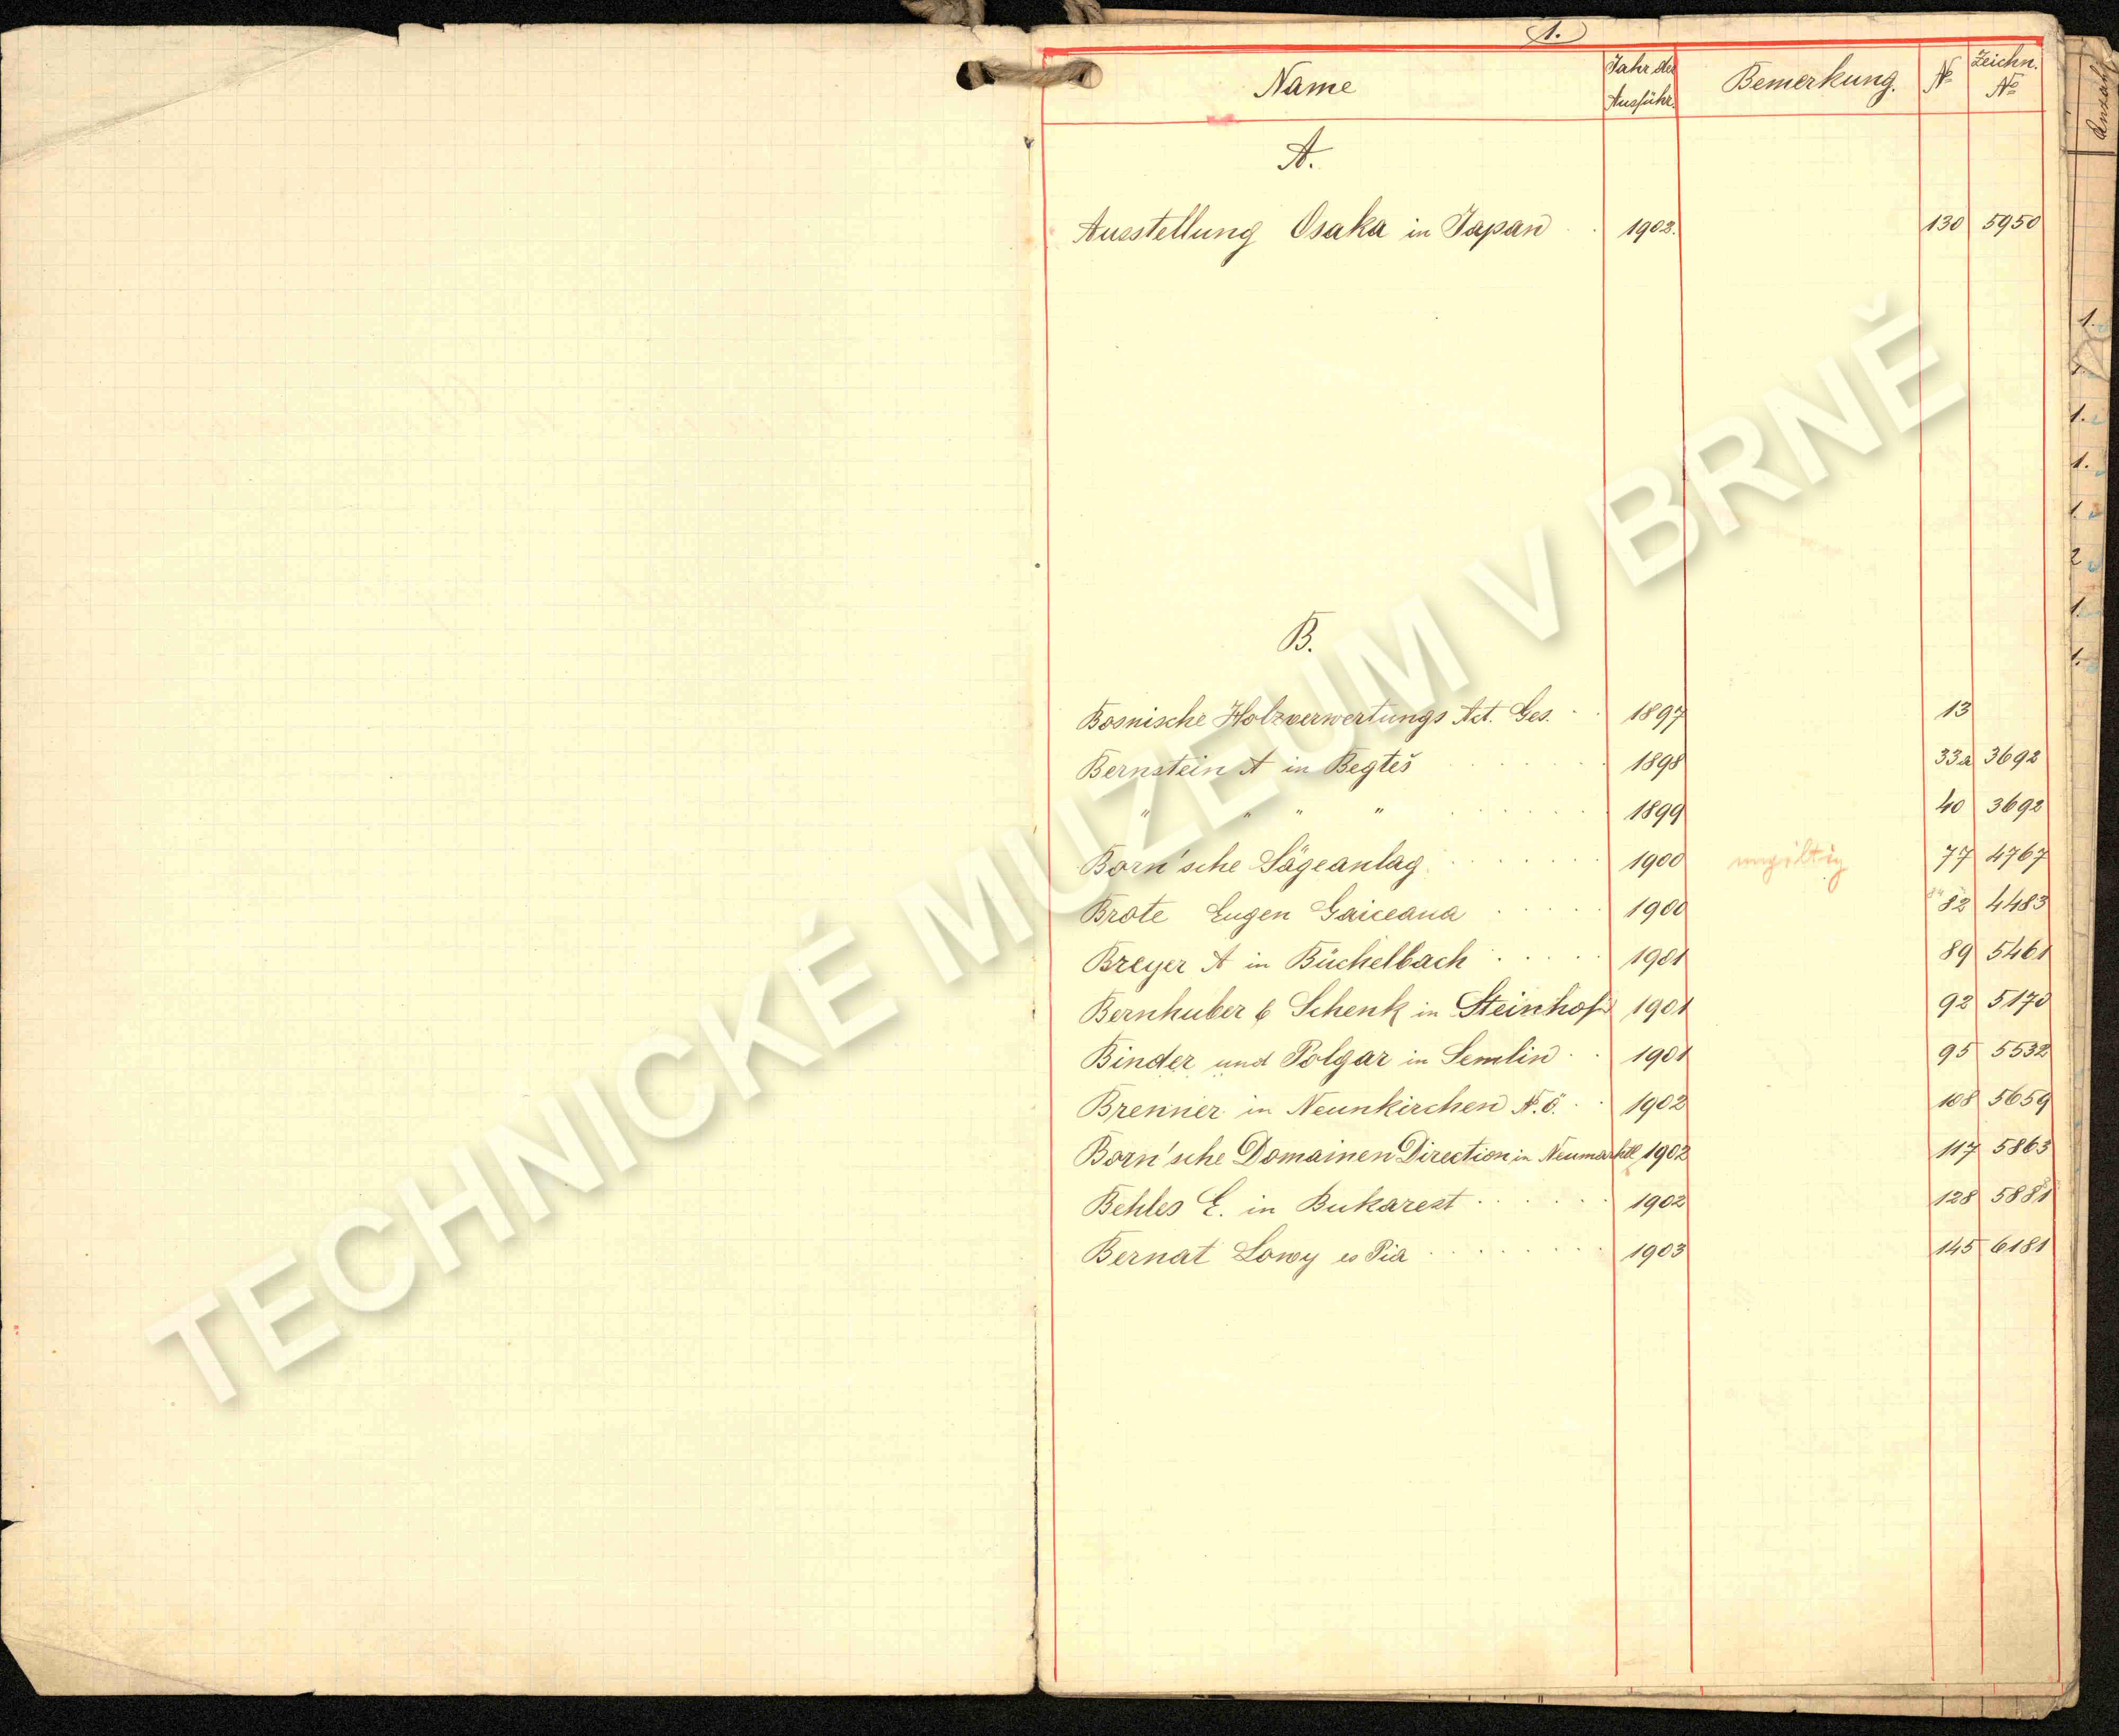 1.
Name Jahr der Ausführ. Bemerkung. № Zeichn. №
Anzahl
A.
Ausstellung Osaka in Japan 1903. 130 5950
B.
Bosnische Holzverwertungs Act. Ges. 1897 13
Bernstein A in Begteš 1898 33a 3692
" " " " 1899 40 3692
Born'sche Sägeanlag. 1900 ungiltig 77 4767
Brote Eugen Gaiceana 1900 82 4483
Breyer A in Büchelbach 1901 89 5461
Bernhuber & Schenk in Steinhof 1901 92 5170
Binder und Polgar in Semlin 1901 95 5532
Brenner in Neunkirchen N.Ö. 1902 108 5659
Born'sche Domainen Direction in Neumarktl 1902 117 5863
Behles E. in Bukarest 1902 128 5881
Bernat Lowy es Pia 1903 145 6181
TECHNICKÉ MUZEUM V BRNĚ